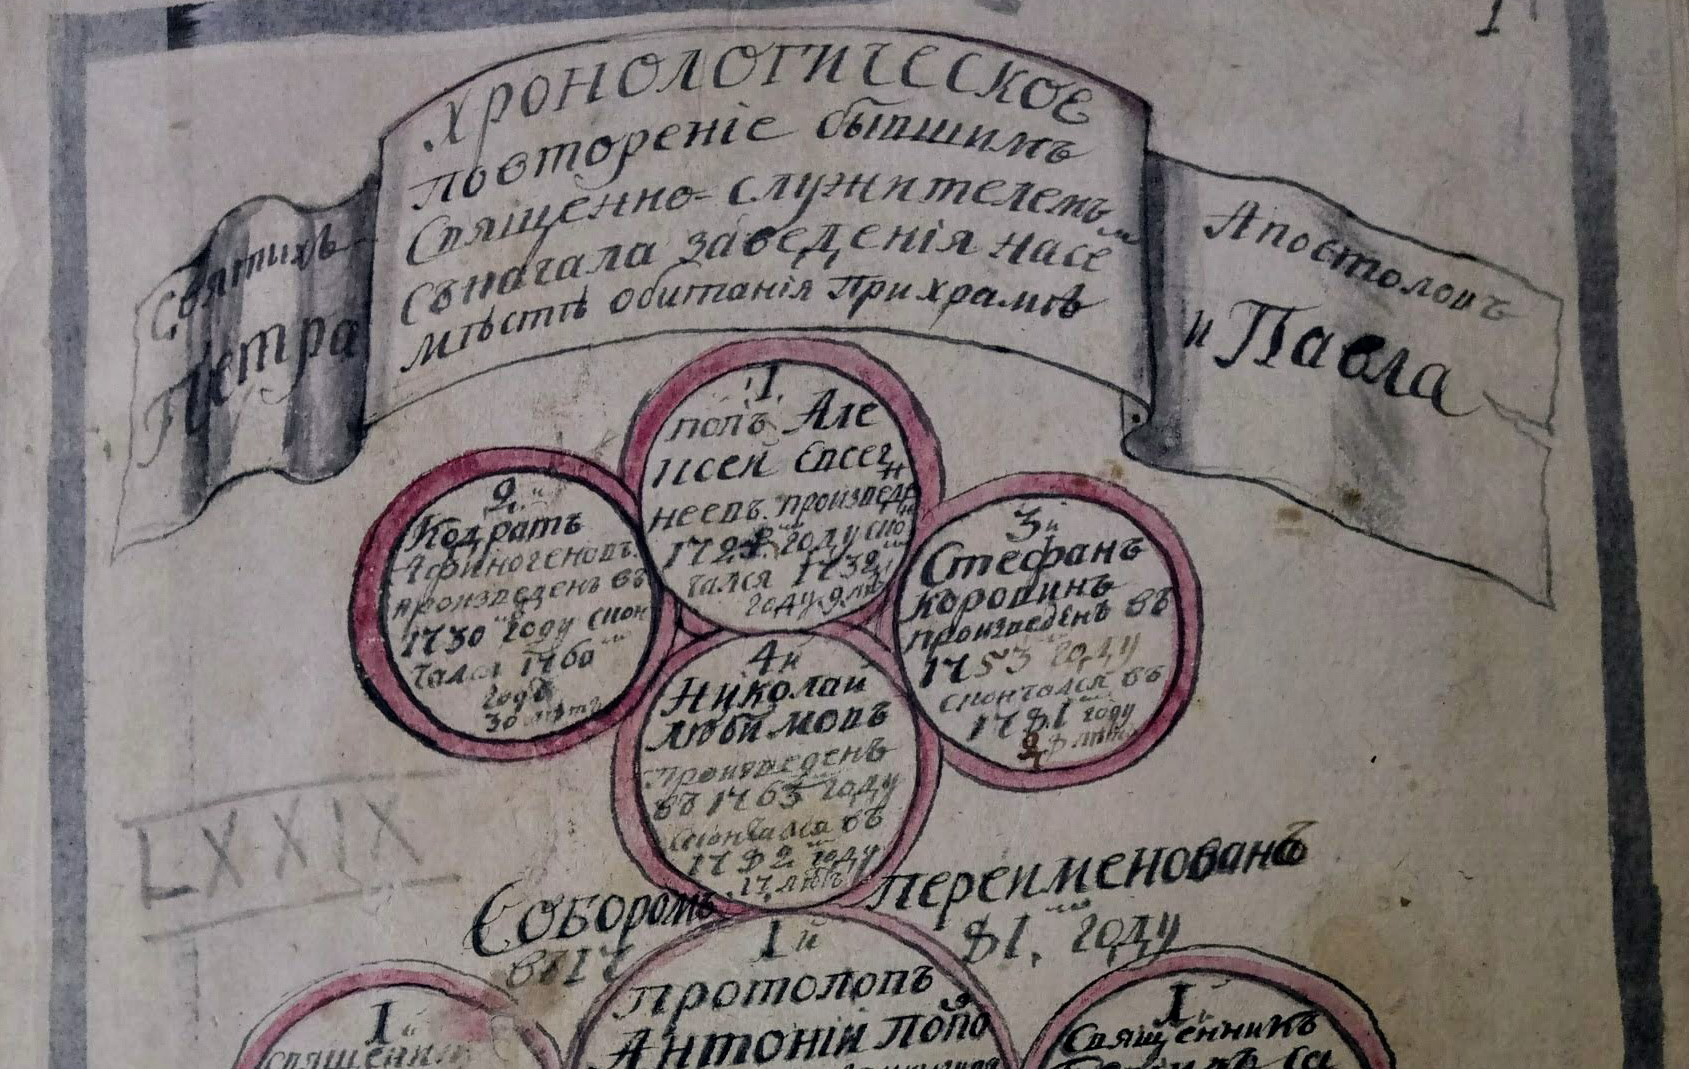 1
Хронологическое
повтореніе бывшимъ
Священно-служителемъ
съначала заведенія насе
мѣстѣ обитанія При храмѣ
Святыхъ
Апостоловъ
Петра
и Павла
1.
попъ Але
ксей Евсег
неевъ. произведе
году
1732
году 9 лѣ
2.й
Кодратъ
Афиногеновъ.
произведенъ въ
1730 году скон
чался 1760
годъ
30
3й
Стефанъ
Коровинъ
произведенъ въ
1753 году
скончался въ
1781 году
4й
Николай
Любимовъ
произведенъ
въ 1765 году
скончался въ
1782 году
17 лѣтъ
LXXIX
Соборомъ Переименованъ
въ 17 81. году
1й
Протопопъ
Антоній Попо
1й
Священник
1й
Священникъ